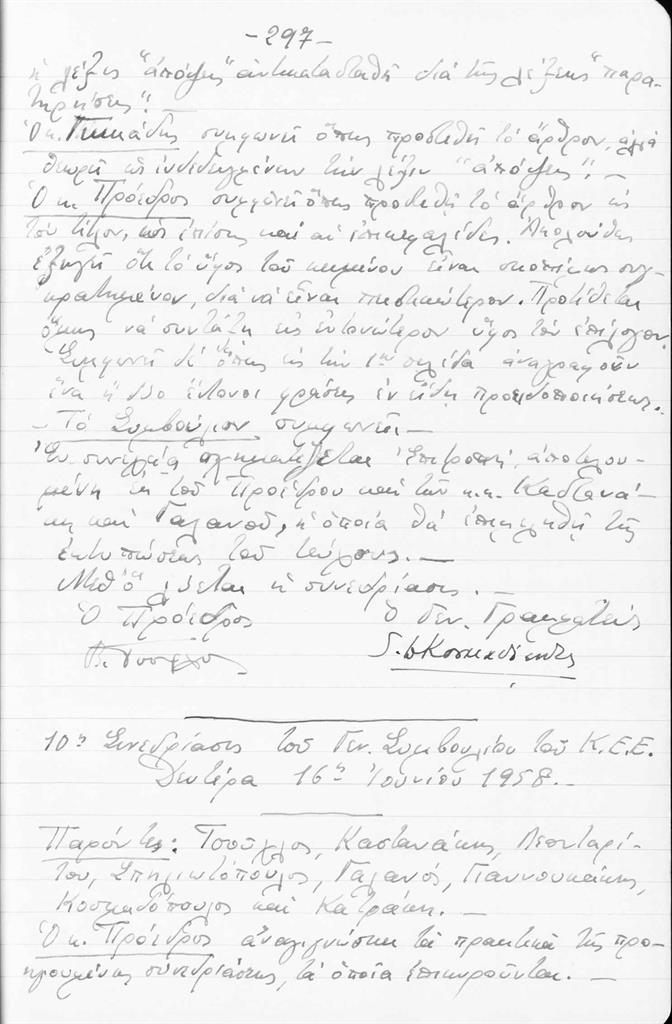 -297-
ἡ λέξις "ἀπόψεις" ἀντικατασταθῇ διὰ τῆς λέξεως "παρα-
τηρήσεις". -
Ὁ κ. συμφωνεῖ ὅπως προστεθῇ τὸ ἄρθρον, ἀλλὰ
θεωρεῖ ὡς ἐνδεδειγμένην τὴν λέξιν "ἀπόψεις". -
Ὁ κ. Πρόεδρος συμφωνεῖ ὅπως προστεθῇ τὸ ἄρθρον εἰς
τὸν τίτλον, ὡς ἐπίσης καὶ αἱ ἐπικεφαλίδες. Ἀκολούθως
ἐξηγεῖ ὅτι τὸ ὕφος τοῦ κειμένου εἶναι σκοπίμως συγ-
κρατημένον, διὰ νὰ εἶναι πειστικώτερον. Προτίθεται
ὅμως νὰ συντάξῃ εἰς ἐντονώτερον ὕφος τὸν ἐπίλογον.
Συμφωνεῖ δὲ ὅπως εἰς τὴν 1ην σελίδα ἀναγραφοῦν
ἕνα ἢ δύο ἔντονοι φράσεις ἐν εἴδει προειδοποιήσεως.
- Τὸ Συμβούλιον συμφωνεῖ -
Ἐν συνεχείᾳ σχηματίζεται Ἐπιτροπή, ἀποτελου-
μένη ἐκ τοῦ Προέδρου καὶ τῶν κ.κ. Καστανά-
κη καὶ Γαλανοῦ, ἡ ὁποία θὰ ἐπιμεληθῇ τῆς
ἐκτυπώσεως τοῦ τεύχους. -
Μεθ' ὃ λύεται ἡ συνεδρίασις. -
Ὁ Πρόεδρος Ὁ Γεν. Γραμματεύς
10η Συνεδρίασις τοῦ Γεν. Συμβουλίου τοῦ Κ.Ε.Ε.
Δευτέρα 16η Ἰουνίου 1958. -
Παρόντες: Τσούχλος, Καστανάκης, Λεονταρί-
του, Σπηλιωτόπουλος, Γαλανός, Γιαννουκάκης,
Κοσμαδόπουλος καὶ Κατράκη. -
Ὁ κ. Πρόεδρος ἀναγιγνώσκει τὰ πρακτικὰ τῆς προ-
ηγουμένης συνεδριάσεως, τὰ ὁποῖα ἐπικυροῦνται. -